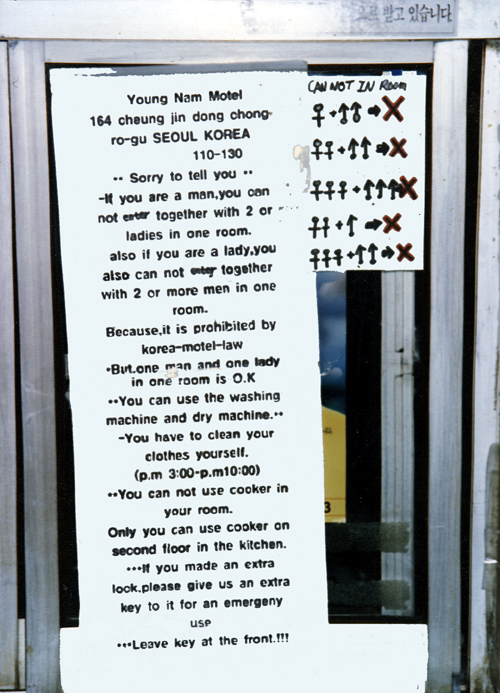 으로 받고 있습니다
Young Nam Motel
164 cheung jin dong chong-
ro-gu SEOUL KOREA
110-130
•• Sorry to tell you ••
-If you are a man,you can
not enter together with 2 or
ladies in one room.
also if you are a lady,you
also can not enter together
with 2 or more men in one
room.
Because,it is prohibited by
korea-motel-law
•But,one man and one lady
in one room is O.K
••You can use the washing
machine and dry machine.••
-You have to clean your
clothes yourself.
(p.m 3:00-p.m10:00)
••You can not use cooker in
your room.
Only you can use cooker on
second floor in the kitchen.
•••If you made an extra
look,please give us an extra
key to it for an emergeny
use
•••Leave key at the front.!!!
CAN NOT IN Room
♀+↑↑➡X
♀♀+↑↑➡X
♀♀+↑↑↑X
♀♀+↑➡X
♀♀♀+↑↑➡X
3